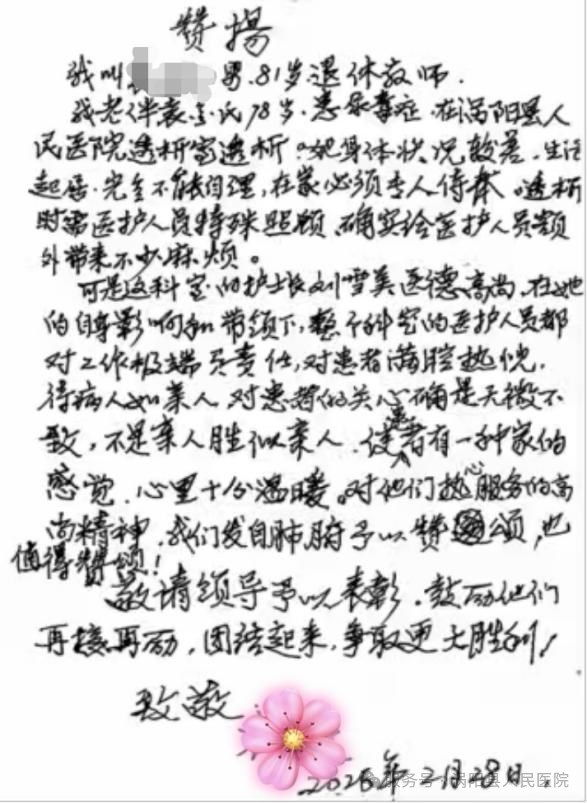 赞扬
我叫 男.81岁退休教师.
我老伴袁 氏78岁.患尿毒症.在涡阳县人
民医院透析室透析。她身体状况较差.生活
起居.完全不能自理,在家必须专人侍 .透析
时需医护人员特殊照顾、确实给医护人员额
外带来不少麻烦。
可是这科室的护士长刘雪美医德高尚.在她
的自身影响和带领下,整个科室的医护人员都
对工作极端负责任,对患者满腔热忱.
待病人如亲人.对患者的关心确是无微不
致,不是亲人胜似亲人.使患者有一种家的
感觉.心里十分温暖。对他们热心服务的高
尚精神.我们发自肺腑予以赞颂,也
值得赞颂!
敬请领导予以表彰.鼓励他们
再接再励,团结起来,争取更大胜利!
致敬
2026年2月28日.
服务号·涡阳县人民医院